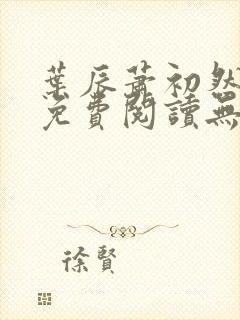 葉辰蕭初然
免費閱讀無
徐賢